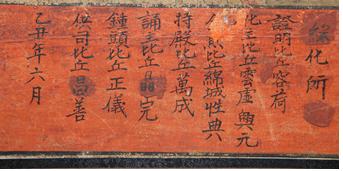 緣化所
證明比丘容荷
化主比丘雲虛興元
比丘綿城性典
持殿比丘萬成
誦主比丘完
鍾頭比丘正儀
供司比丘昌善
乙丑年六月